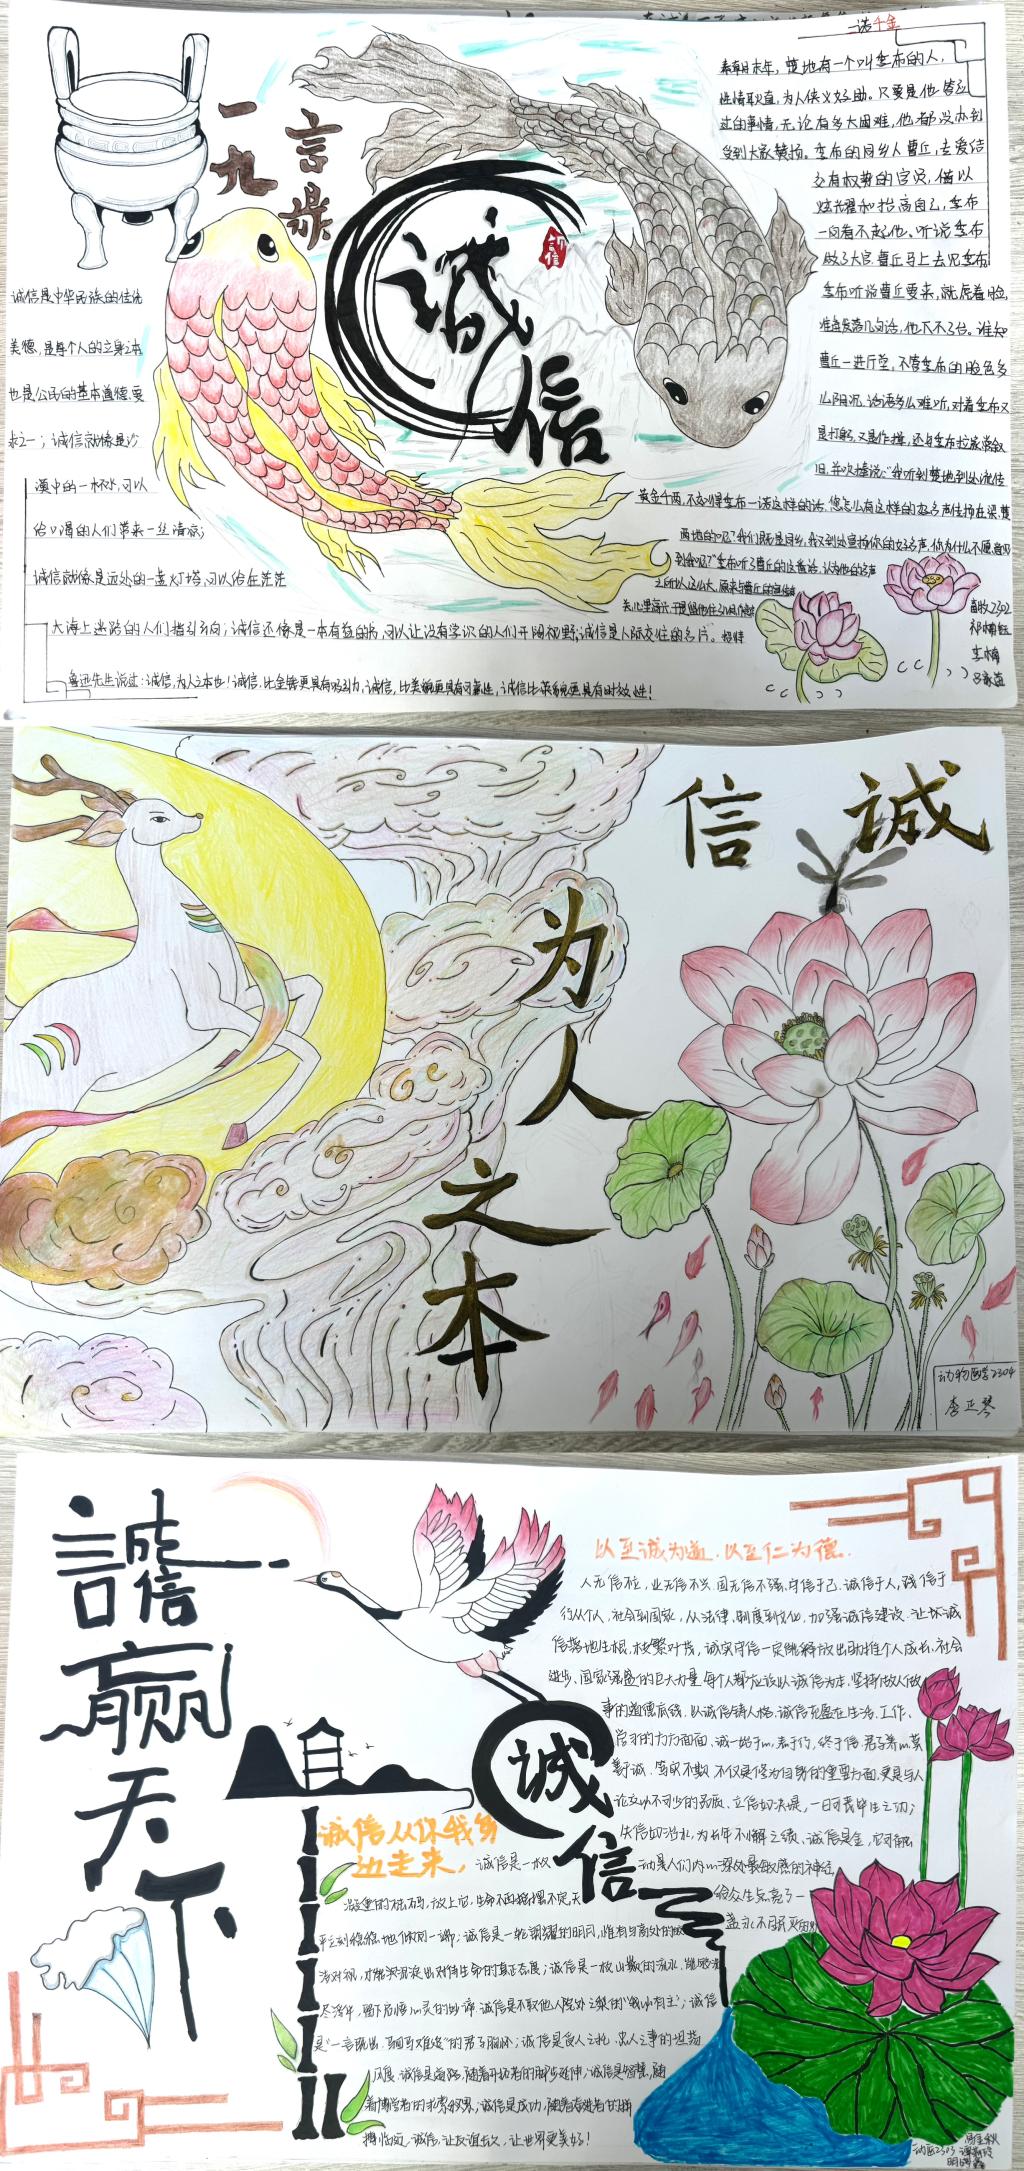 一言
九鼎
诚信
一诺千金
秦朝末年，楚地有一个叫季布的人，
性情耿直，为人侠义好助。只要是他答应
过的事情，无论有多大困难，他都设办到
受到大家赞扬。季布的同乡人曹丘，去爱结
交有权势的官员，借以
炫耀和抬高自己，季布
一向看不起他、听说季布
做了大官，曹丘马上去见季布。
季布听说曹丘要来，就虎着脸，
准备发落几句话，他下不了台。谁知
曹丘一进厅堂，不管季布的脸色多
么阴沉，话语多么难听，对着季布又
是打躬，又是作揖，还与季布拉家常叙
旧，并吹捧说："我听到楚地到处流传
黄金千两，不如得季布一诺这样的话，您怎么有这样的好名声传扬在梁、楚
两地的呢？我们既是同乡，我又到处宣扬你的好名声，你为什么不愿
到我呢？"季布听了曹丘的这番话，认为他的名声
之所以这么大，原来与曹丘的宣传
诚信是中华民族的传统
美德，是每个人的立身之本
也是公民的基本道德要
求之一；诚信就像是沙
漠中的一杯水，可以
给口渴的人们带来一丝清凉；
诚信就像是远处的一盏灯塔，可以给在茫茫
大海上迷路的人们指引方向；诚信还像是一本有益的书，可以让没有学识的人们开阔视野；诚信是人际交往的名片。
鲁迅先生说过：诚信，为人之本也！诚信，比金钱更具有吸引力，诚信，比美貌更具有可靠性，诚信比荣誉更具有时效性！
畜牧2302
李楠
诚信
为人之本
动物医学2304
李正琴
誠信
赢
天
下
以至诚为道，以至仁为德。
人无信不立，业无信不兴，国无信不强，守信于己、诚信于人，践信于
行从个人、社会到国家，从法律、制度到文化，加强诚信建设，让以诚
信落地生根、枝繁叶茂，诚实守信一定能释放出助推个人成长、社会
进步、国家强盛的巨大力量，每个人都应该以诚信为本，坚持做人做
事的道德底线，以诚信铸人格，诚信充盈在生活、工作、
学习的方方面面、诚一始于心，表于行，终于信，君子养心莫
善于诚，笃实不欺，不仅是修为自身的重要方面，更是与人
论交必不可少的品质、立信如决堤，一日可丧毕生之功；
失信如治水，为长年不懈之绩、诚信是金，它可
动是人们内心深处最敏感的神经，
给众生点亮了一
盏永不泯灭的
诚信
诚信从你我身
边走来，诚信是一枚
凝重的砝码，放上它，生命不再摇摆不定，天
平立刻稳稳地倾向一端；诚信是一轮朗耀的明月，惟有与高处的皎
洁对视，才能沉淀出对待生命的真正态度；诚信是一枚山巅的流水，能够洗
尽浮华，留下启悟心灵的妙谛，诚信是不取他人院外之梨的"我心有主"；诚信
是"一言既出，驷马难追"的君子胸怀；诚信是食人之禄，忠人之事的坦荡
风度，诚信是道路，随着开拓者的脚步延伸；诚信是智慧，随
着博学者的求索积累，诚信是成功，随着奋进者的拼
搏临近，诚信，让友谊长久，让世界更美好！
动医2303